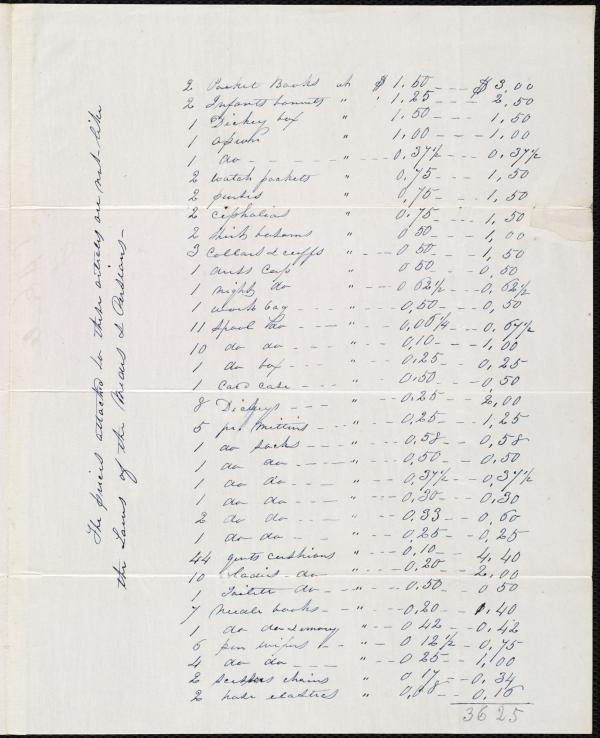 2 Pocket Books at $ 1.50 --- $ 3.00
2 Infants bonnets " 1.25 --- 2.50
1 Dickey box " 1.50 --- 1,50
1 apron " 1,00 --- 1.00
1 do - - - - - " 0.37½ --- 0.37½
2 watch pockets " 0,75 --- 1,50
2 " 0,75 --- 1,50
2 cephalias " 0.75 --- 1,50
2 shirt bosoms " 0 50 --- 1,00
3 collars & cuffs " --- 0 50 -- 1,50
1 dress cap " 0 50 -- 0,50
1 night do " --- 0 62½ -- 0,62½
1 work bag --- " -- 0,50 -- 0,50
11 Spool do --- " -- 0,06¼ -- 0.67½
10 do do --- " -- 0,10 -- 1,00
1 do box --- " -- 0.25 -- 0,25
1 Card case --- " 0,50 -- 0,50
8 Dickeys --- " -- 0.25 -- 2,00
5 pr. Mittins --- " 0,25 -- 1,25
1 do socks --- " -- 0,58 -- 0,58
1 do do --- " -- 0,50 -- 0,50
1 do do --- " -- 0,37½ -- 0,37½
1 do do --- " -- 0,30 -- 0,30
2 do do --- " -- 0,33 -- 0,60
1 do do -- " -- 0,25 -- 0,25
44 gents cushions " -- 0,10 -- 4,40
10 Ladies do " -- 0,20 -- 2,00
1 Toilette do -- " -- 0,50 -- 0 50
7 Needle books -- " -- 0,20 -- 1,40
1 do do & emory " -- 0 42 -- 0,42
6 pen wipers -- " -- 0 12½ -- 0,75
4 do do --- " -- 0 25 -- 1,00
2 scissors chains " 0 17 -- 0,34
2 elastics " 0,08 -- 0,16
36 25
The prices attached to these articles are not like
the Laws of the Medes & Persians -